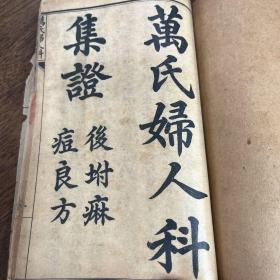 萬氏婦人科
集證
後坿痳
痘良方